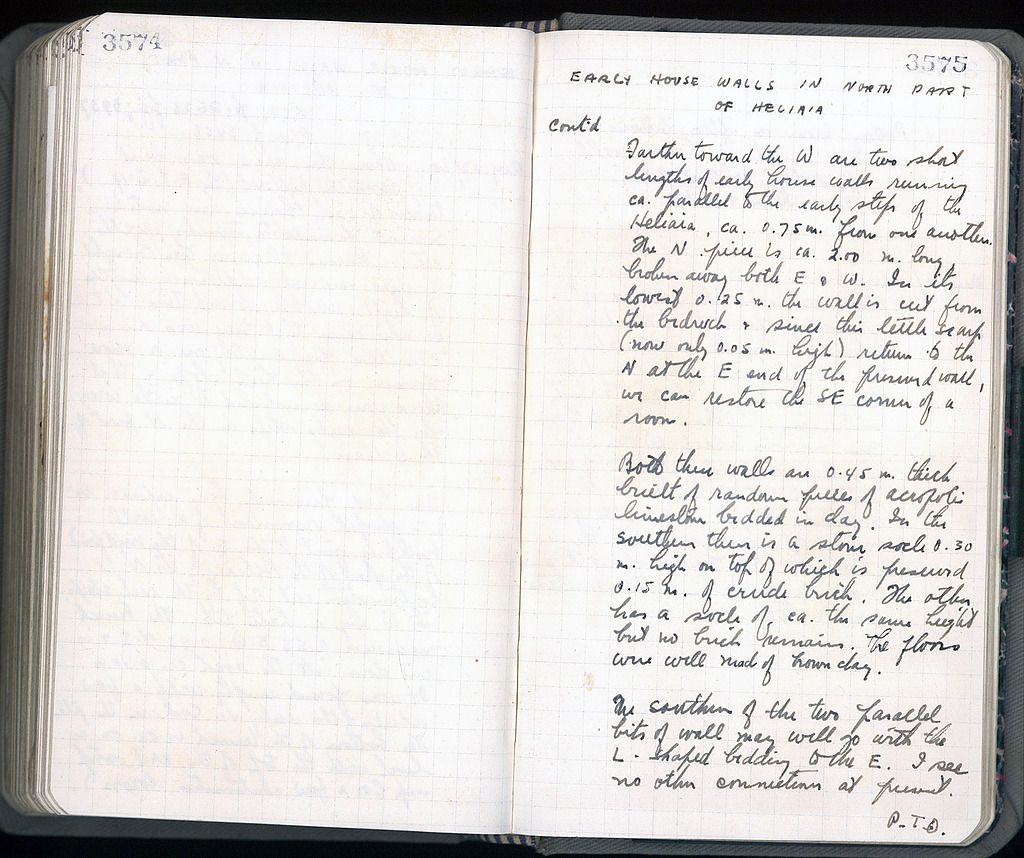 3574
3575
EARLY HOUSE WALLS IN NORTH PART
OF HELIAIA
Cont'd
Farther toward the W are two short
lengths of early house walls running
ca. parallel to the early steps of the
Heliaia, ca. 0.75 m. from one another.
The N. piece is ca. 2.00 m. long,
broken away both E & W. In its
lowest 0.25 m. the wall is cut from
the bedrock & since this little scarp
(now only 0.05 m. high) returns to the
N at the E end of the preserved wall,
we can restore the SE corner of a
room.
Both these walls are 0.45 m. thick
built of random pieces of acropolis
limestone bedded in clay. In the
southern there is a stone socle 0.30
m. high on top of which is preserved
0.15 m. of crude brick. The other
has a socle of ca. the same height
but no brick remains. The floors
were well made of brown clay.
The southern of the two parallel
bits of wall may well go with the
L-shaped bedding to the E. I see
no other connections at present.
P.T.O.